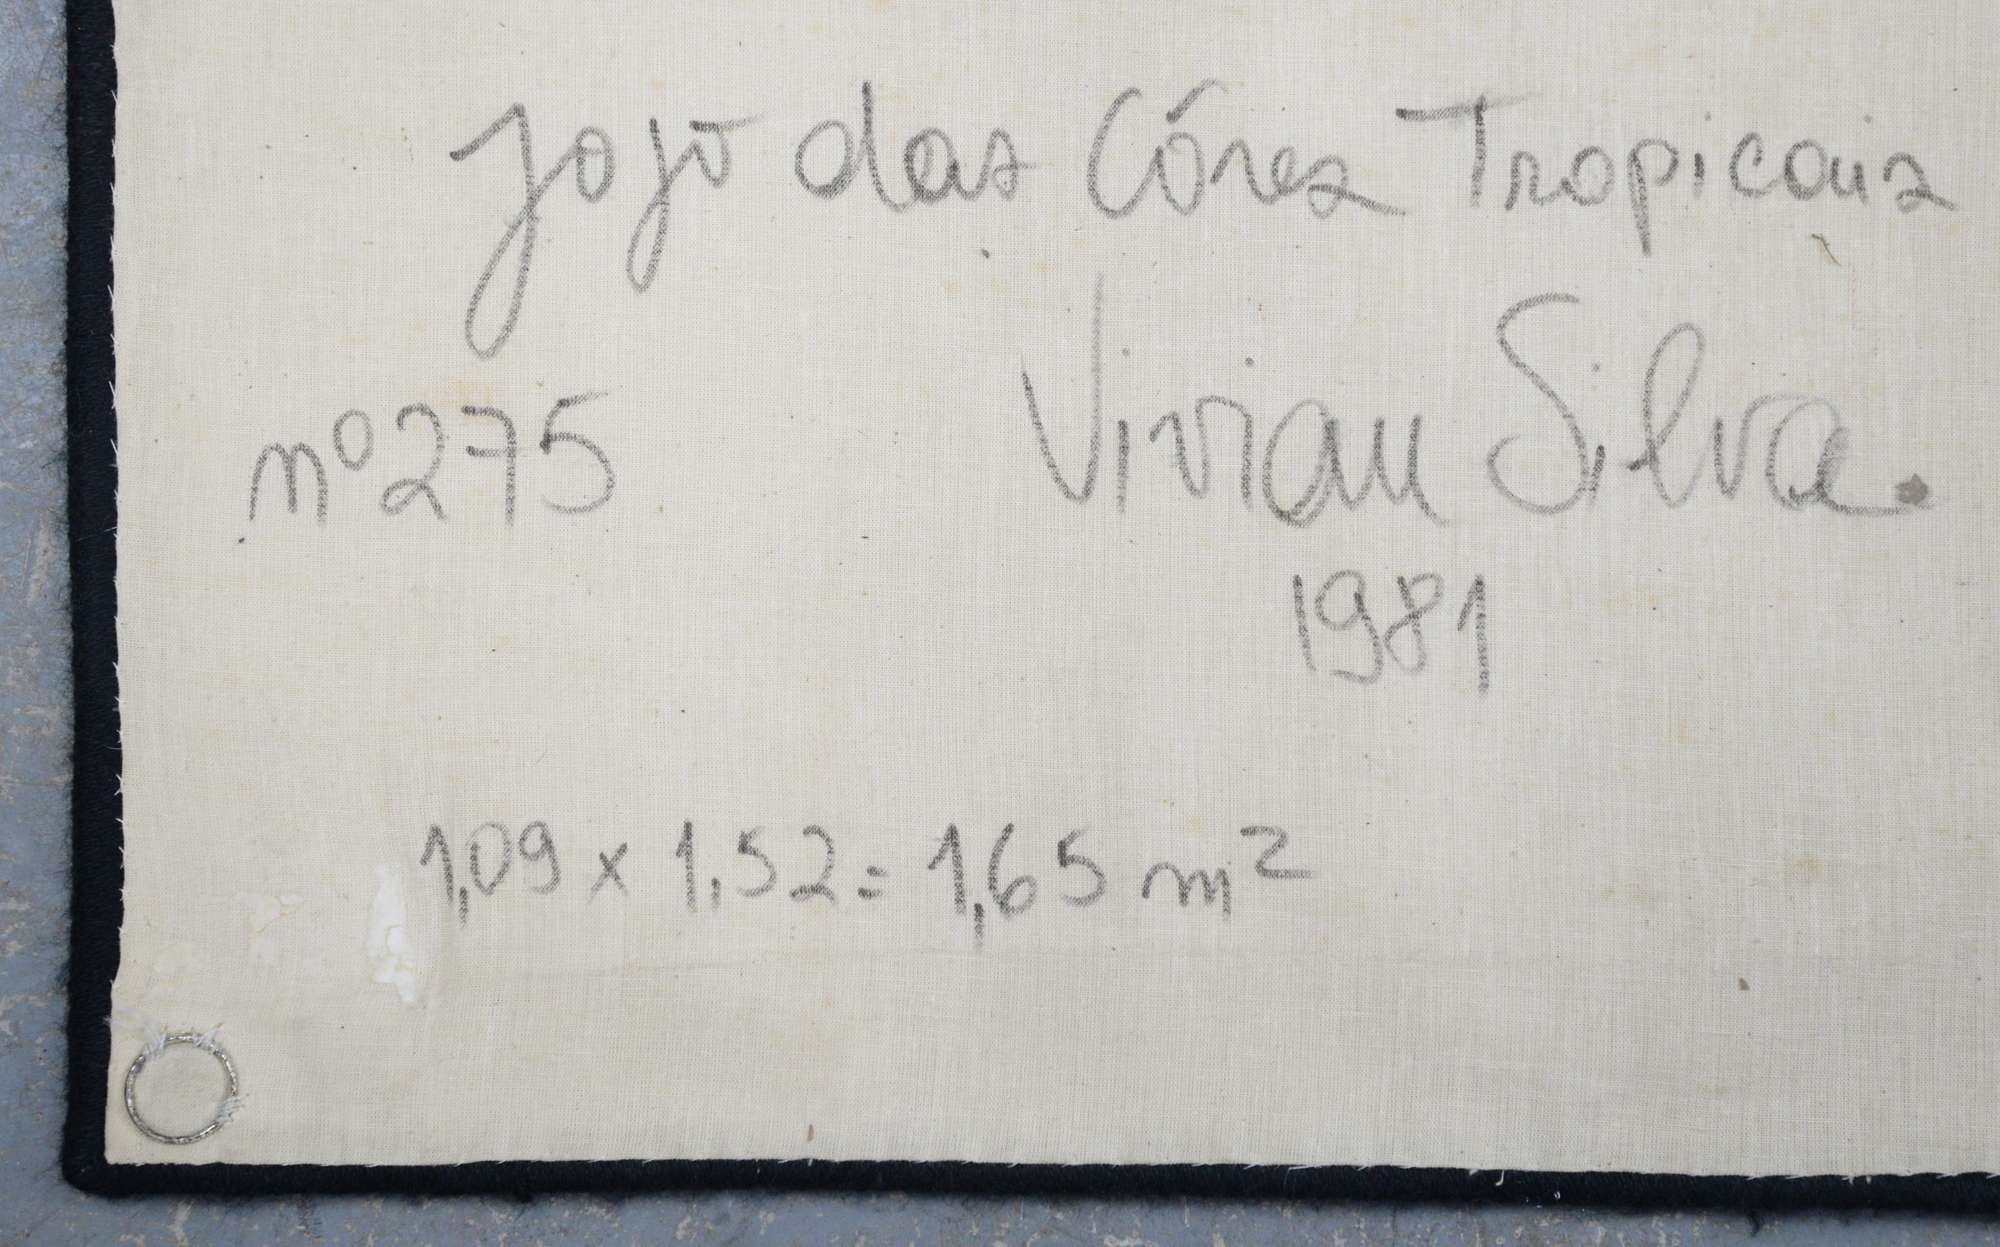 Jojô das Côres Tropicais
nº 275 Vivian Silva.
1981
1,09 x 1,52 = 1,65 m²